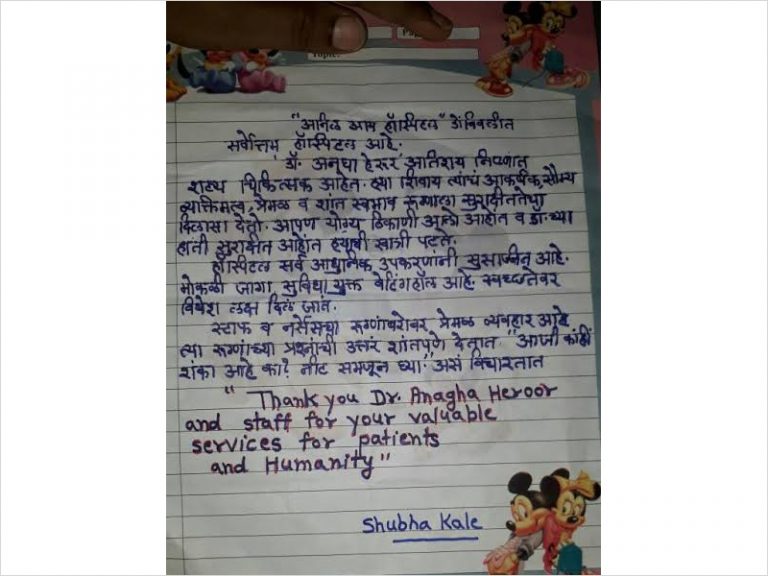 "अनिल आय हॉस्पिटल" डोंबिवलीत
सर्वोत्तम हॉस्पिटल आहे.
डॉ. अनघा हेरूर अतिशय निष्णात
शल्य चिकित्सक आहेत. ह्या शिवाय त्यांचं आकर्षक, सौम्य
व्यक्तिमत्व, प्रेमळ व शांत स्वभाव रूग्णाला सुरक्षिततेचा
दिलासा देतो. आपण योग्य ठिकाणी आलो आहोत व डॉ. च्या
हाती सुरक्षीत आहोत ह्याची खात्री पटते.
हॉस्पिटल सर्व आधुनिक उपकरणांनी सुसज्जित आहे.
मोकळी जागा सुविधा युक्त वेटिंगहॉल आहे. स्वच्छतेवर
विशेश लक्ष दिलं जातं.
स्टाफ व नर्सेसचा रूग्णांबरोबर प्रेमळ व्यवहार आहे
त्या रूग्णांच्या प्रश्नांची उत्तरं शांतपूणे देतात. "आजी कांहीं
शंका आहे का? नीट समजून घ्या." असं विचारतात
" Thank you Dr. Anagha Heroor
and staff for your valuable
services for patients
and Humanity"
Shubha Kale